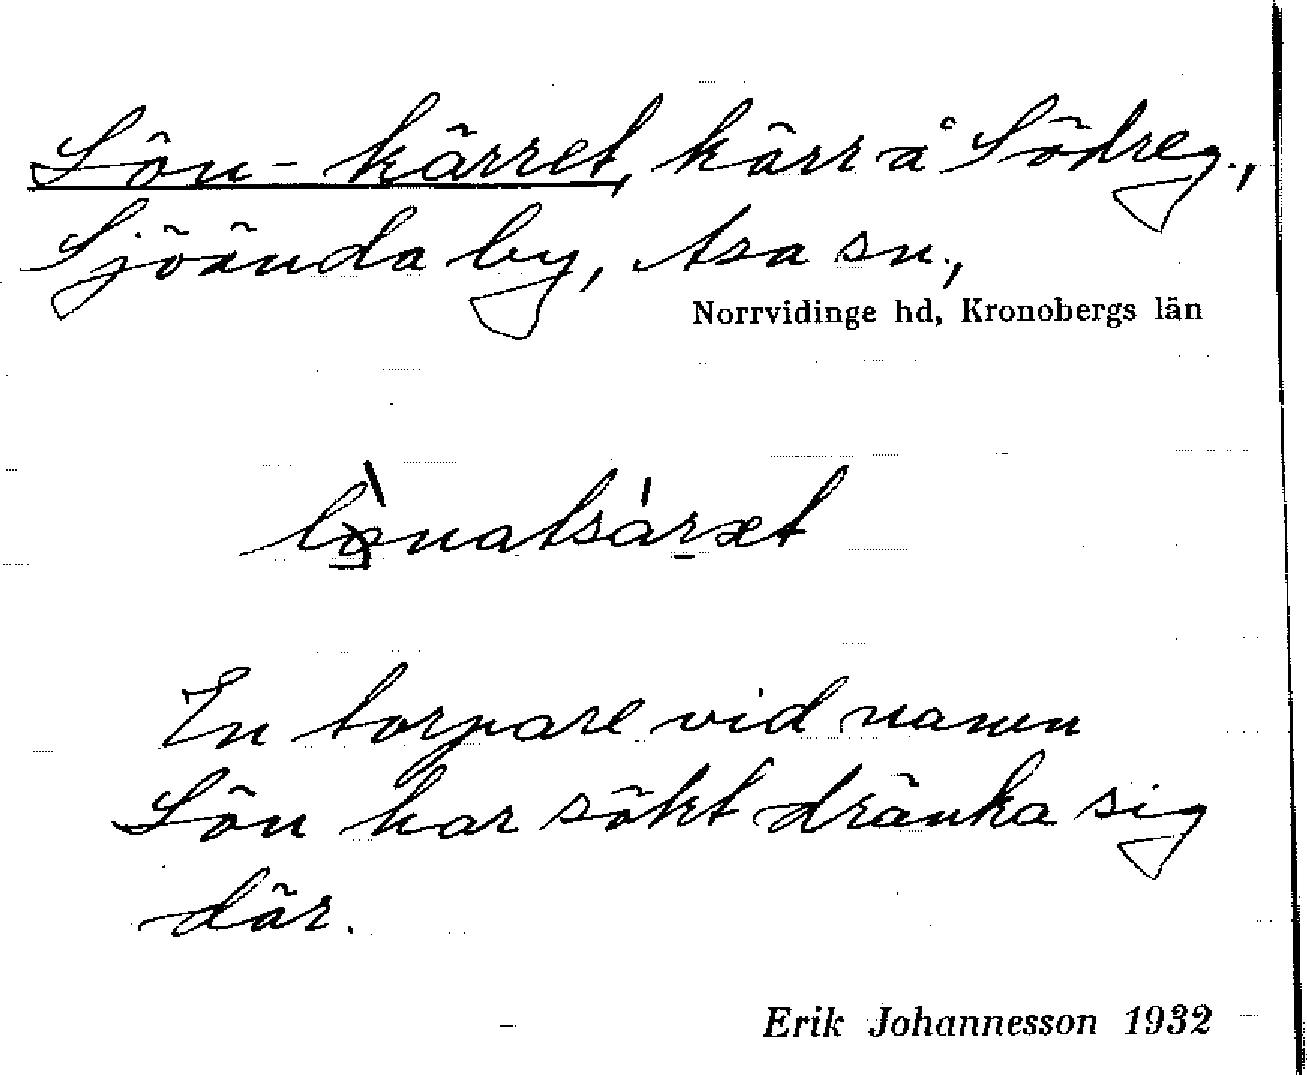 Lön-kärret, kärr å Södreg.,
Sjöända by, Asa sn.,
Norrvidinge hd, Kronobergs län
En torpare vid namn
Lön har sökt dränka sig
där.
Erik Johannesson 1932